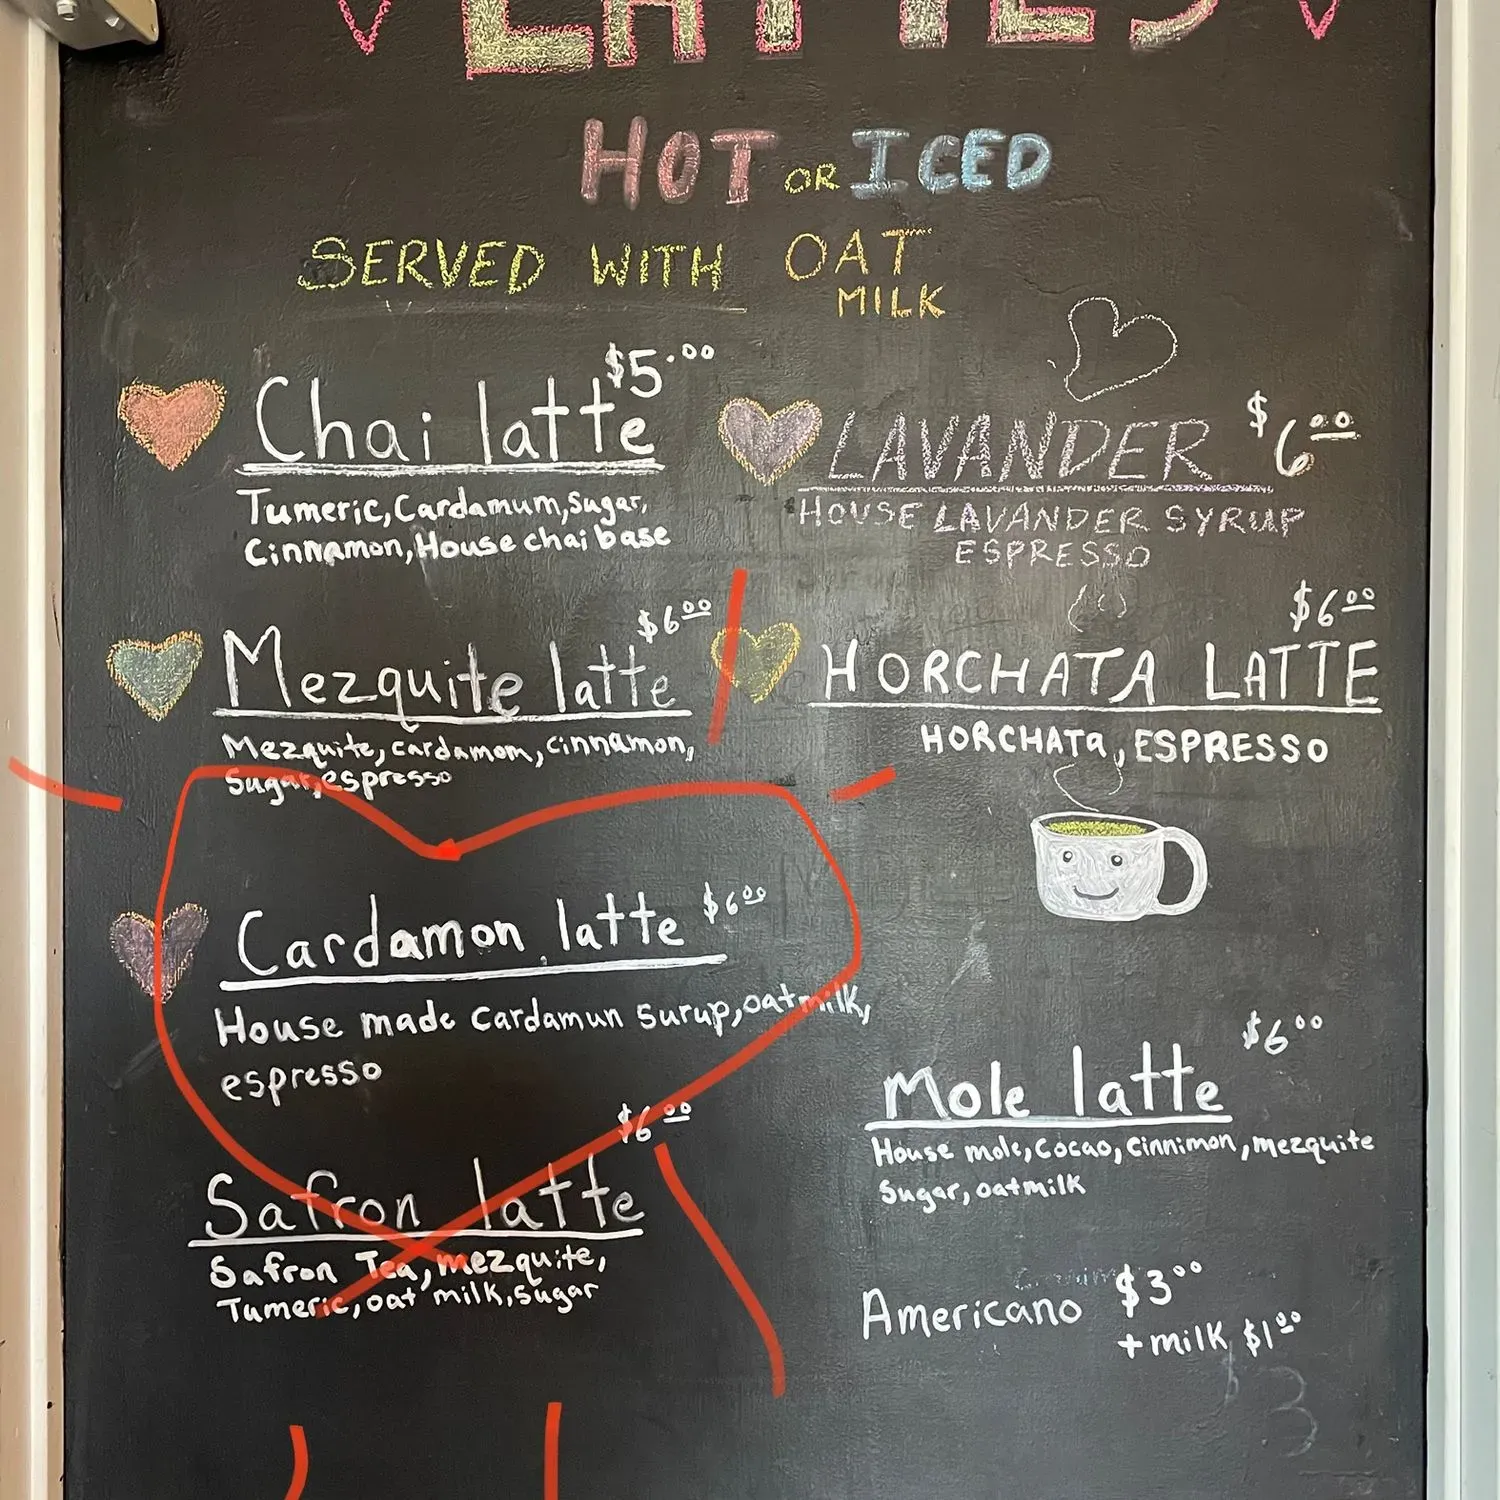 LATTES
HOT OR ICED
SERVED WITH OAT
MILK
Chai latte $5.00
Tumeric, Cardamum, Sugar,
Cinnamon, House chai base
Mezquite latte $6.00
Mezquite, cardamom, cinnamon,
Sugar, espresso
Cardamon latte $6.00
House made cardamun surup, oatmilk,
espresso
Safron latte $6.00
Safron Tea, mezquite,
Tumeric, oat milk, sugar
LAVANDER $6.00
HOUSE LAVANDER SYRUP
ESPRESSO
HORCHATA LATTE $6.00
HORCHATA, ESPRESSO
Mole latte $6.00
House mole, Cocao, Cinnimon, mezquite
Sugar, oatmilk
Americano $3.00
+milk $1.00